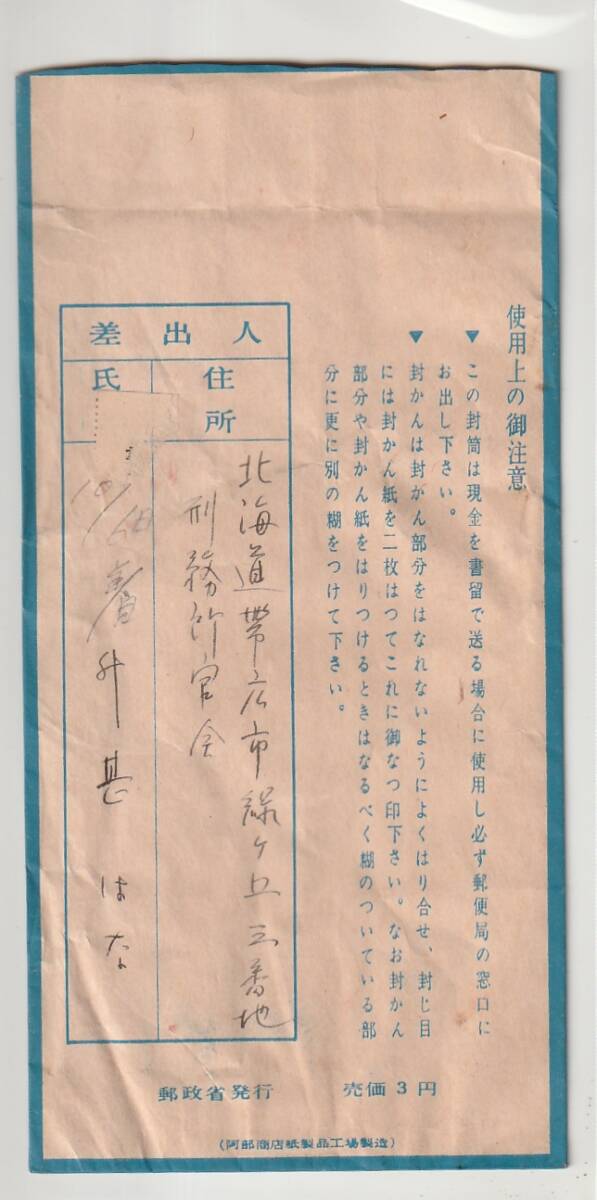 使用上の御注意
▼この封筒は現金を書留で送る場合に使用し必ず郵便局の窓口に
お出し下さい。
▼封かんは封がん部分をはなれないようによくはり合せ、封じ目
には封かん紙を二枚はつてこれに御なつ印下さい。なお封かん
部分や封かん紙をはりつけるときはなるべく糊のついている部
分に更に別の糊をつけて下さい。
差出人
住所
北海道帯広市緑ヶ丘三番地
刑務所官舎
氏
甚はな
郵政省発行 売価3円
(阿部商店紙製品工場製造)